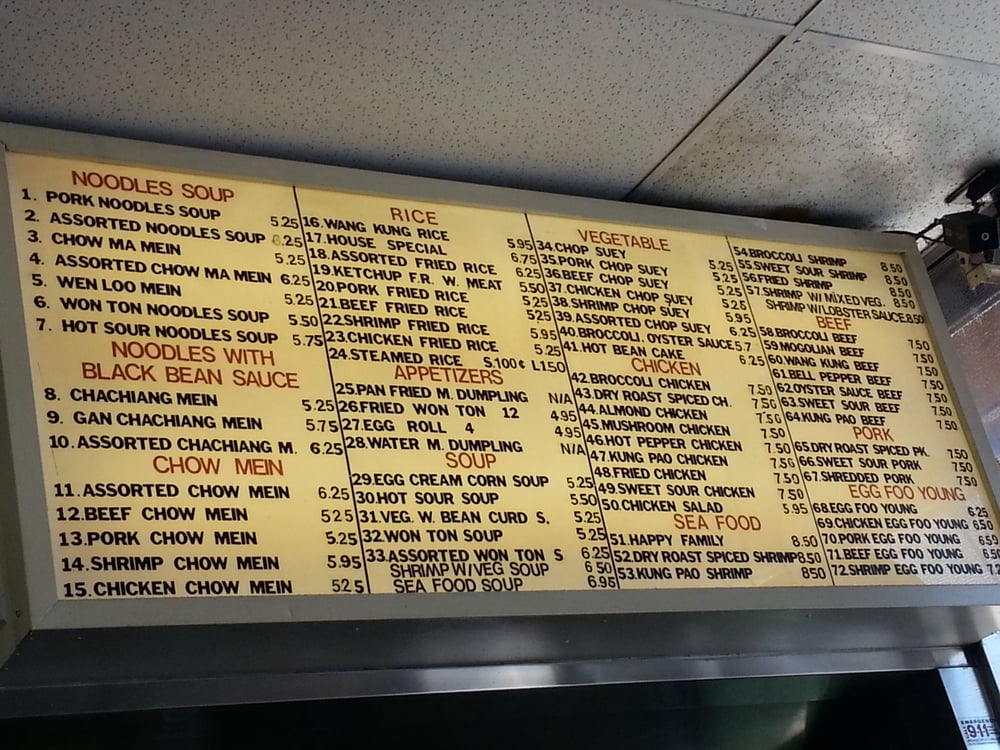 NOODLES SOUP
1. PORK NOODLES SOUP 5.25
2. ASSORTED NOODLES SOUP 6.25
3. CHOW MA MEIN 5.25
4. ASSORTED CHOW MA MEIN 6.25
5. WEN LOO MEIN 5.25
6. WON TON NOODLES SOUP 5.50
7. HOT SOUR NOODLES SOUP 5.75
NOODLES WITH
BLACK BEAN SAUCE
8. CHACHIANG MEIN 5.25
9. GAN CHACHIANG MEIN 5.75
10. ASSORTED CHACHIANG M. 6.25
CHOW MEIN
11. ASSORTED CHOW MEIN 6.25
12. BEEF CHOW MEIN 525
13. PORK CHOW MEIN 5.25
14. SHRIMP CHOW MEIN 5.95
15. CHICKEN CHOW MEIN 52.5
RICE
16. WANG KUNG RICE 5.95
17. HOUSE SPECIAL 6.75
18. ASSORTED FRIED RICE 6.25
19. KETCHUP F.R. W. MEAT 5.50
20. PORK FRIED RICE 5.25
21. BEEF FRIED RICE 525
22. SHRIMP FRIED RICE 5.95
23. CHICKEN FRIED RICE 5.25
24. STEAMED RICE S.100¢ L150
APPETIZERS
25. PAN FRIED M. DUMPLING N/A
26. FRIED WON TON 12 4.95
27. EGG ROLL 4 4.95
28. WATER M. DUMPLING N/A
SOUP
29. EGG CREAM CORN SOUP 5.25
30. HOT SOUR SOUP 5.50
31. VEG. W. BEAN CURD S. 5.25
32. WON TON SOUP 5.25
33. ASSORTED WON TON S 6.25
SHRIMP W/VEG SOUP 6 50
SEA FOOD SOUP 6.95
VEGETABLE
34. CHOP SUEY 5.25
35. PORK CHOP SUEY 5.25
36. BEEF CHOP SUEY 5.25
37. CHICKEN CHOP SUEY 5.25
38. SHRIMP CHOP SUEY 5.95
39. ASSORTED CHOP SUEY 6.25
40. BROCCOLI, OYSTER SAUCE 5.7
41. HOT BEAN CAKE 6.25
CHICKEN
42. BROCCOLI CHICKEN 7.50
43. DRY ROAST SPICED CH. 7.50
44. ALMOND CHICKEN 7.50
45. MUSHROOM CHICKEN 7.50
46. HOT PEPPER CHICKEN 7.50
47. KUNG PAO CHICKEN 7.50
48. FRIED CHICKEN 7.50
49. SWEET SOUR CHICKEN 7.50
50. CHICKEN SALAD 5.95
SEA FOOD
51. HAPPY FAMILY 8.50
52. DRY ROAST SPICED SHRIMP 8.50
53. KUNG PAO SHRIMP 850
54. BROCCOLI SHRIMP 8.50
55. SWEET SOUR SHRIMP 8.50
56. FRIED SHRIMP 8.50
57. SHRIMP W/ MIXED VEG. 8.50
SHRIMP W/LOBSTER SAUCE.8.50
BEEF
58. BROCCOLI BEEF 7.50
59. MOGOLIAN BEEF 7.50
60. WANG KUNG BEEF 7.50
61. BELL PEPPER BEEF 7.50
62. OYSTER SAUCE BEEF 7.50
63. SWEET SOUR BEEF 7.50
64. KUNG PAO BEEF 7.50
PORK
65. DRY ROAST SPICED PK. 7.50
66. SWEET SOUR PORK 7.50
67. SHREDDED PORK 7.50
EGG FOO YOUNG
68. EGG FOO YOUNG 6.25
69. CHICKEN EGG FOO YOUNG 6.50
70. PORK EGG FOO YOUNG 6.50
71. BEEF EGG FOO YOUNG 6.50
72. SHRIMP EGG FOO YOUNG 7.2
911